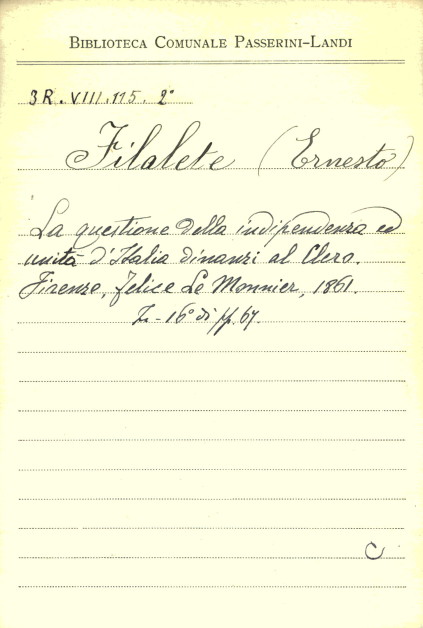 BIBLIOTECA COMUNALE PASSERINI-LANDI
3R.VIII.115. 2°
Filalete (Ernesto)
La questione della indipendenza ed
unità d'Italia dinanzi al Clero.
Firenze, Felice Le Monnier, 1861.
In-16° di pp. 67.
C